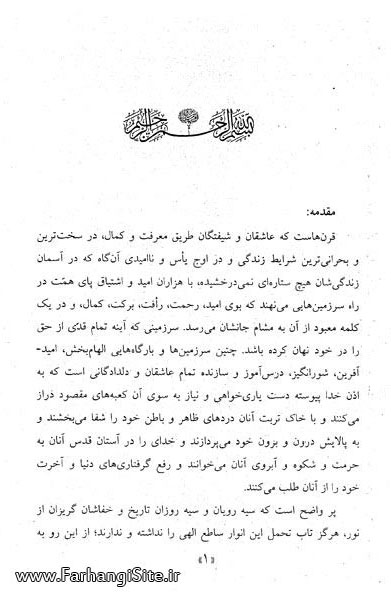 بسم الله الرحمن الرحیم
مقدمه:
قرن‌هاست که عاشقان و شیفتگان طریق معرفت و کمال، در سخت‌ترین
و بحرانی‌ترین شرایط زندگی و در اوج یأس و ناامیدی آن‌گاه که در آسمان
زندگی‌شان هیچ ستاره‌ای نمی‌درخشیده، با هزاران امید و اشتیاق پای همّت در
راه سرزمین‌هایی می‌نهند که بوی امید، رحمت، رأفت، برکت، کمال، و در یک
کلمه معبود از آن به مشام جانشان می‌رسد. سرزمینی که آینه تمام قدّی از حق
را در خود نهان کرده باشد. چنین سرزمین‌ها و بارگاه‌هایی الهام‌بخش، امید-
آفرین، شورانگیز، درس‌آموز و سازنده تمام عاشقان و دلدادگانی است که به
اذن خدا پیوسته دست یاری‌خواهی و نیاز به سوی آن کعبه‌های مقصود دراز
می‌کنند و با خاک تربت آنان دردهای ظاهر و باطن خود را شفا می‌بخشند و
به پالایش درون و برون خود می‌پردازند و خدای را در آستان قدس آنان به
حرمت و شکوه و آبروی آنان می‌خوانند و رفع گرفتاری‌های دنیا و آخرت
خود را از آنان طلب می‌کنند.
پر واضح است که سیه رویان و سیه روزان تاریخ و خفاشان گریزان از
نور، هرگز تاب تحمل این انوار ساطع الهی را نداشته و ندارند؛ از این رو به
«۱»
www.FarhangiSite.ir